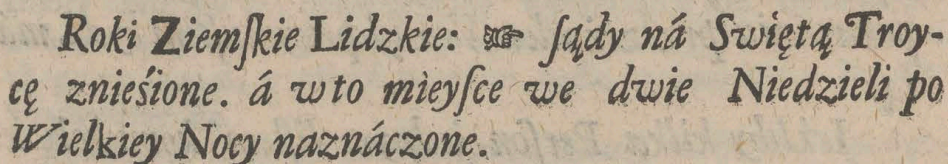 Roki Ziemſkie Lidzkie: ☞ ſądy ná Swiętą Troy-
cę znieśione. á w to mieyſce we dwie Niedzieli po
Wielkiey Nocy naznáczone.